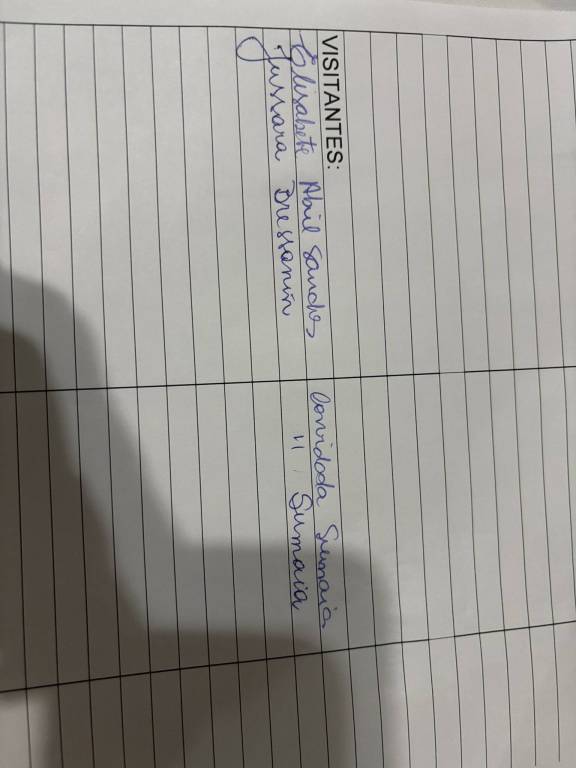 VISITANTES:
Elisabete Abil Sanches Convidada Sumaia
Jussara Bressanin " Sumaia